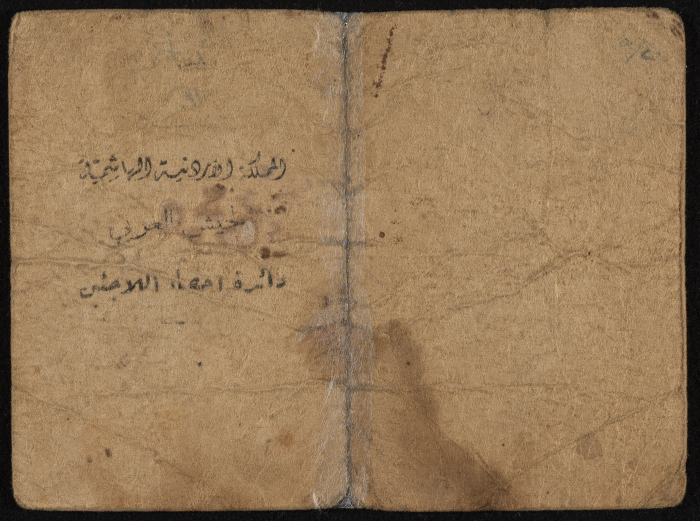 المملكة الأردنية الهاشمية
الجيش العربي
دائرة احصاء اللاجئين